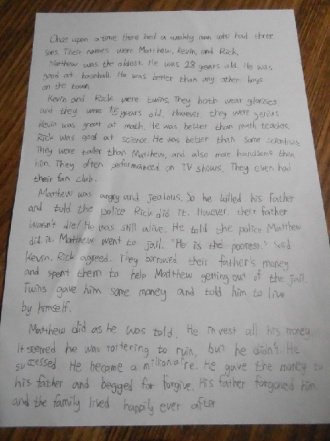 Once upon a time there lived a wealthy man who had three
sons. Their names were Matthew, Kevin, and Rick.
Matthew was the oldest. He was 28 years old. He was
good at baseball. He was better than any other boys
in the town.
Kevin and Rick were twins. They both wear glasses
and they were 15 years old. However they were genius.
Kevin was great at math. He was better than math teacher.
Rick was good at science. He was better than some scientists.
They were than Matthew, and also more handsome than
him. They often on TV shows. They even had
their fan club.
Matthew was angry and jealous. So he killed his father
and told the police Rick did it. However their father
doesn't die! He was still alive. He told the police Matthew
did it. Matthew went to jail. "He is the poorest." said
Kevin. Rick agreed. They borrowed their father's money
and spent them to help Matthew getting out of the jail.
Twins gave him some money and told him to live
by himself.
Matthew did as he was told. He invest all his money.
It seemed he was to ruin, but he didn't. He
succesed. He became a millionaire. He gave the money to
his father and begged for forgive. His father forgaved him
and the family lived happily ever after